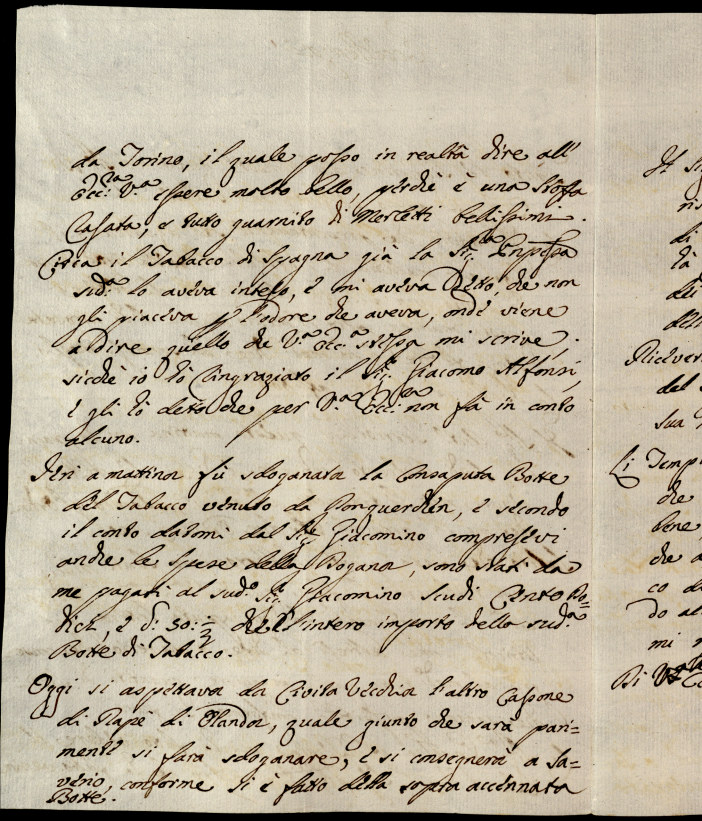 da Torino, il quale posso in realtà dire all'
Ecc:za V.a essere molto bello, perchè è una stoffa
Casata, e tutto guarnito di Merletti bellissimi.
Circa il Tabacco di Spagna già la Sig.ra
sud.a lo aveva inteso, e mi aveva detto, che non
gli piaceva p l'odore che aveva, onde viene
a dire quello che V.a Ecc.a stessa mi scrive,
sicchè io ò ringraziato il Sig. Giacomo Alfonsi,
è gli ò detto che per V.a Ecc:za non fà in conto
alcuno.
Jeri a mattina fù sdoganata la consaputa Botte
del Tabacco venuto da Donquerchen, è secondo
il conto datomi dal Sig. Giacomino compresevi
anche le spese della Dogana, sono stati da
me pagati al sud.o Sig. Giacomino Scudi Cento Do=
dici, è d: 50:½ che è l'intero importo della sud.a
Botte di Tabacco.
Oggi si aspettava da Civita Vecchia l'altro Cassone
di Rapè di Olanda, quale giunto che sarà pari=
menti si farà sdoganare, è si consegnerà a Sa=
verio, conforme si è fatto della sopra accennata
Botte.
It
di
Ricever
del
sua
Li Temp
che
bene,
che a
co da
do al
mi
Di V.